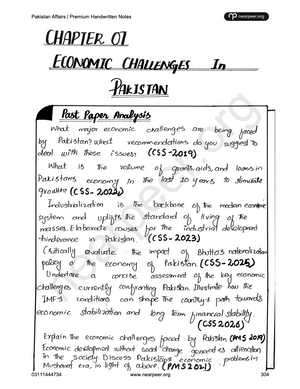 Pakistan Affairs | Premium Handwritten Notes
nearpeer.org
CHAPTER 07
ECONOMIC CHALLENGES In
PAKISTAN
Past Paper Analysis
What major economic challenges are being faced
by Pakistan? What recommendations do you suggest to
deal with these issues? (CSS-2019)
What is the volume of grants, aids, and loans in
Pakistan's economy in the last 10 years to stimulate
growth (CSS-2022)
Industrialization is the backbone of the modern economic
system and uplifts the standard of living of the
masses. Elaborate causes for the industrial development
hinderance in Pakistan. (CSS-2023)
Critically evaluate the impact of Bhutto's nationalization
policy on the economy of Pakistan. (CSS-2025)
Undertake concise assessment of the key economic
challenges currently confronting Pakistan. Illustrate how the
IMF's conditions can shape the country's path towards
economic stabilization and long term financial stability.
(CSS 2026)
Explain the economic challenges faced by Pakistan (PMS 2019)
Economic development without social change generates alienation
in the society. Discuss Pakistan's economic problems in
Musharaf era, in light of above. (PMS 2021)
nearpeer.org
03111444734
www.nearpeer.org
304